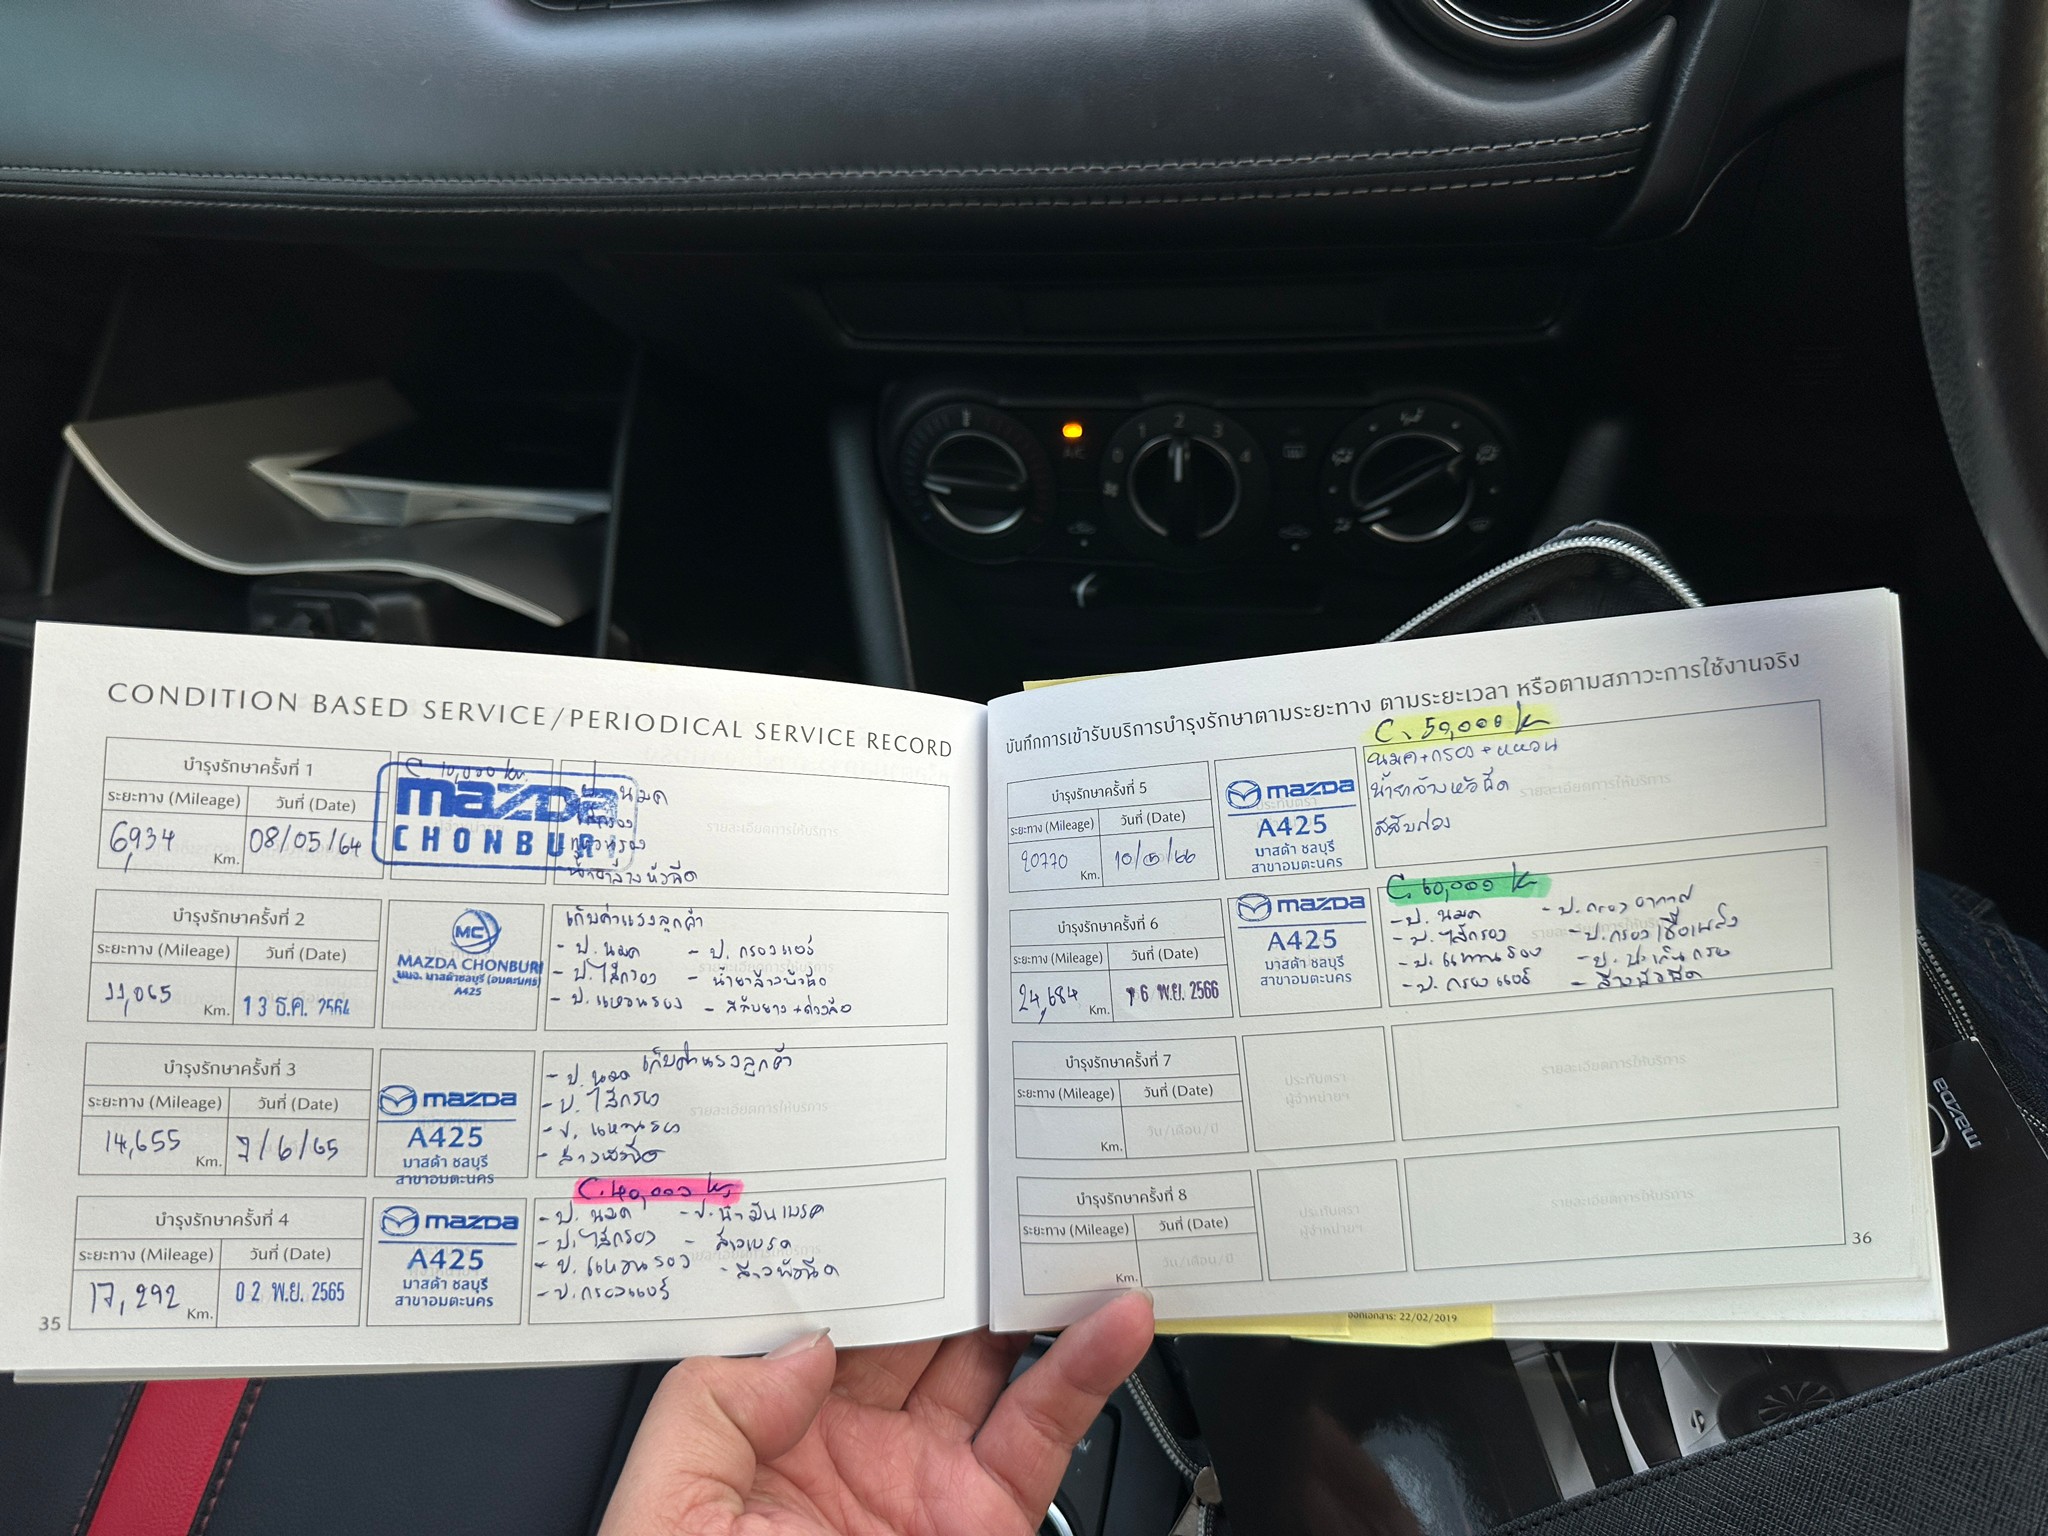 CONDITION BASED SERVICE/PERIODICAL SERVICE RECORD
บำรุงรักษาครั้งที่ 1
ระยะทาง (Mileage)
วันที่ (Date)
6,934 Km.
08/05/64
C 10,000 km.
mazda
CHONBURI
ป. นมค
ไส้กรอง
แหวนรอง
น้ำยาล้างหัวฉีด
รายละเอียดการให้บริการ
บำรุงรักษาครั้งที่ 2
ระยะทาง (Mileage)
วันที่ (Date)
11,065 Km.
13 ธ.ค. 2564
MC
MAZDA CHONBURI
บมจ. มาสด้าชลบุรี (อมตะนคร)
A425
เก็บค่าแรงลูกค้า
- ป. นมค - ป. กรองแอร์
- ป. ไส้กรอง - น้ำยาล้างหัวฉีด
- ป. แหวนรอง - สลับยาง+ถ่วงล้อ
บำรุงรักษาครั้งที่ 3
ระยะทาง (Mileage)
วันที่ (Date)
14,655 Km.
7/6/65
mazda
A425
มาสด้า ชลบุรี
สาขาอมตะนคร
เก็บค่าแรงลูกค้า
- ป. นมค
- ป. ไส้กรอง
- ป. แหวนรอง
- ล้างหัวฉีด
รายละเอียดการให้บริการ
บำรุงรักษาครั้งที่ 4
ระยะทาง (Mileage)
วันที่ (Date)
17,292 Km.
02 พ.ย. 2565
mazda
A425
มาสด้า ชลบุรี
สาขาอมตะนคร
C. 40,000 km
- ป. นมค - ป. น้ำมันเบรค
- ป. ไส้กรอง - ล้างเบรค
- ป. แหวนรอง - ล้างหัวฉีด
- ป. กรองแอร์
35
บันทึกการเข้ารับบริการบำรุงรักษาตามระยะทาง ตามระยะเวลา หรือตามสภาวะการใช้งานจริง
บำรุงรักษาครั้งที่ 5
ระยะทาง (Mileage)
วันที่ (Date)
20770 Km.
10/5/66
mazda
A425
มาสด้า ชลบุรี
สาขาอมตะนคร
C. 50,000 km
นมค+กรอง+แหวน
น้ำยาล้างหัวฉีด
สลับถ่วง
รายละเอียดการให้บริการ
บำรุงรักษาครั้งที่ 6
ระยะทาง (Mileage)
วันที่ (Date)
24,684 Km.
6 พ.ย. 2566
mazda
A425
มาสด้า ชลบุรี
สาขาอมตะนคร
C. 60,000 km
- ป. นมค - ป. กรองอากาศ
- ป. ไส้กรอง - ป. กรองเชื้อเพลิง
- ป. แหวนรอง
- ป. กรองแอร์ - ล้างหัวฉีด
บำรุงรักษาครั้งที่ 7
ระยะทาง (Mileage)
วันที่ (Date)
Km.
วัน/เดือน/ปี
ประทับตรา
ผู้จำหน่ายฯ
รายละเอียดการให้บริการ
บำรุงรักษาครั้งที่ 8
ระยะทาง (Mileage)
วันที่ (Date)
Km.
วัน/เดือน/ปี
ประทับตรา
ผู้จำหน่ายฯ
รายละเอียดการให้บริการ
36
ออกเอกสาร: 22/02/2019
mazda
0 1 2 3 4
A/C